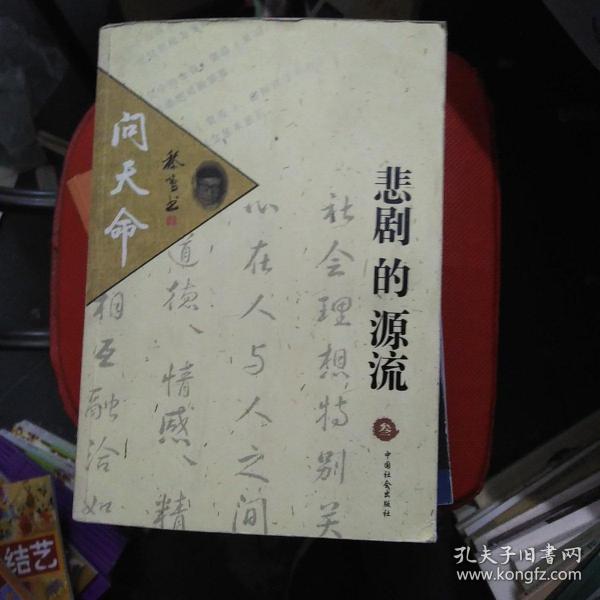 问天命
悲剧的源流
叁
中国社会出版社
社会理想特别关
心在人与人之间
道德、情感、精
相互融洽如
结艺
孔夫子旧书网
www.kongfz.com